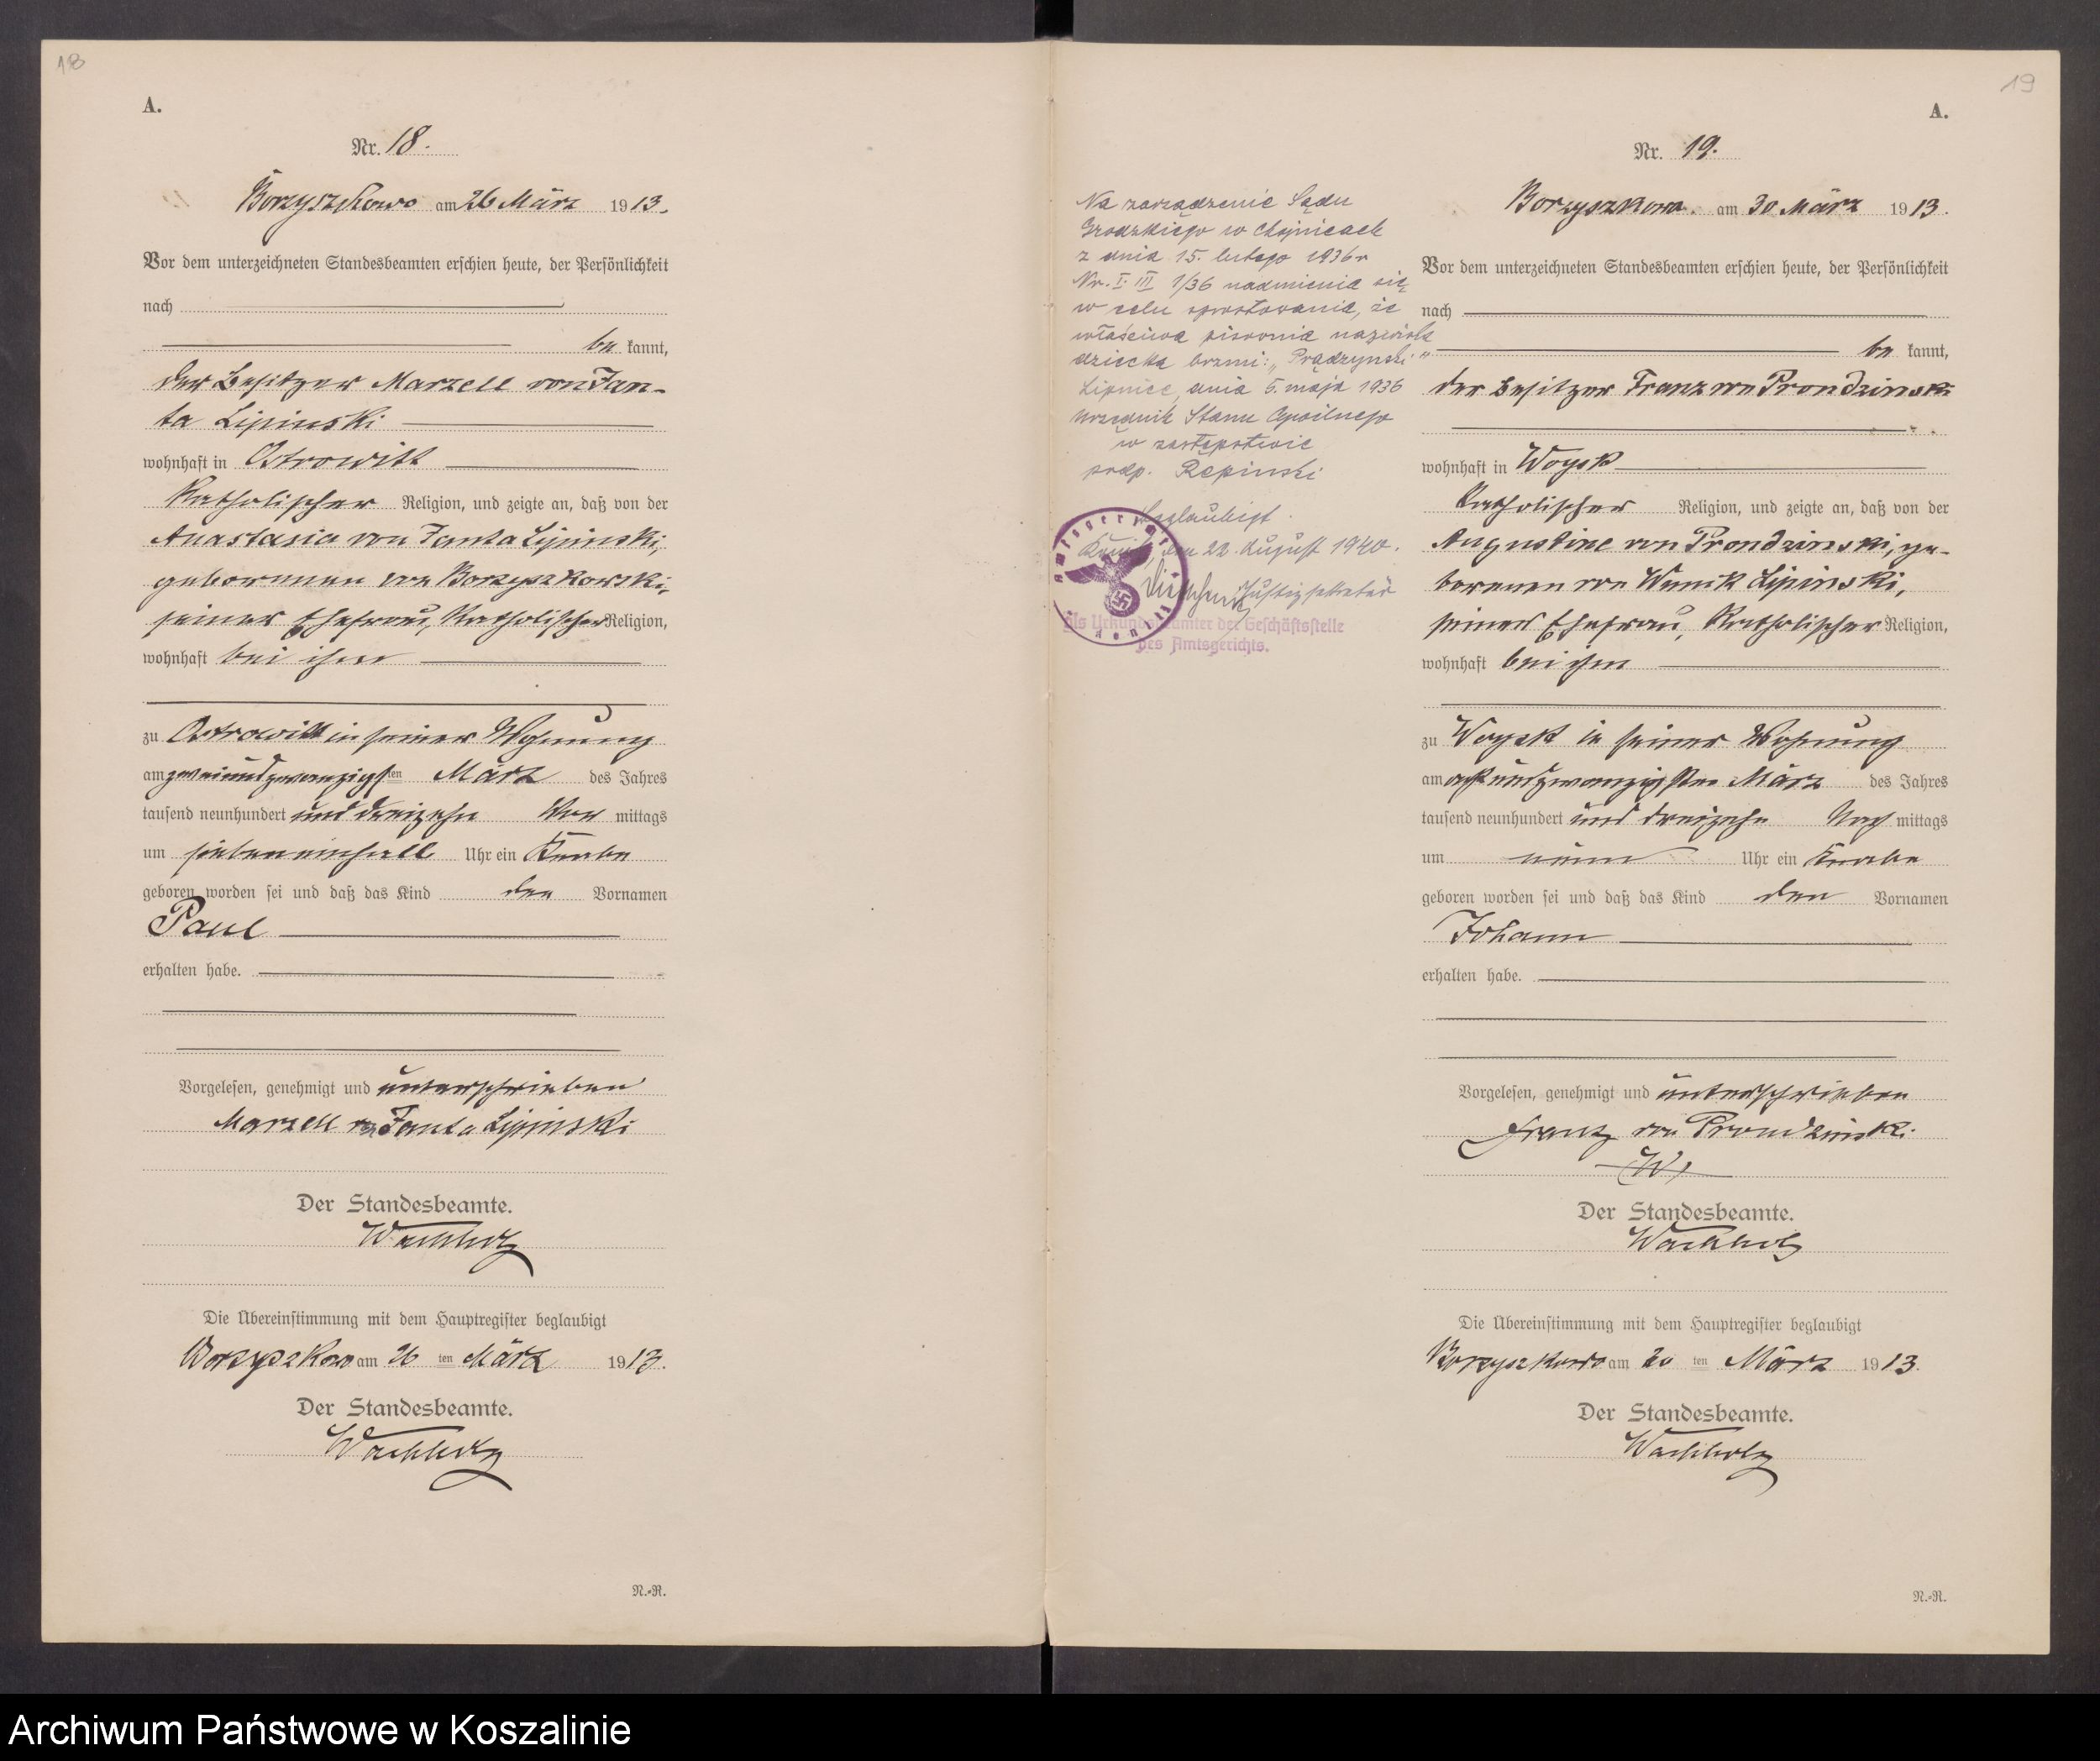 18
A.
Nr. 18.
Borzyszkowo am 26 März 1913.
Vor dem unterzeichneten Standesbeamten erschien heute, der Persönlichkeit
nach
be kannt,
der Besitzer Marzell von Jan-
ta Lipinski
wohnhaft in Ostrowitt
katholischer Religion, und zeigte an, daß von der
Anastasia von Janta Lipinski,
geborenen von Borzyszkowski,
seiner Ehefrau, katholischer Religion,
wohnhaft bei ihm
zu Ostrowitt in seiner Wohnung
am zweiundzwanzigsten März des Jahres
tausend neunhundert und dreizehn Vor mittags
um siebeneinhalb Uhr ein Knabe
geboren worden sei und daß das Kind den Vornamen
Paul
erhalten habe.
Vorgelesen, genehmigt und unterschrieben
Marzell von Janta Lipinski
Der Standesbeamte.
Wachholz
Die Übereinstimmung mit dem Hauptregister beglaubigt
Borzyszkowo am 26 ten März 1913.
Der Standesbeamte.
Wachholz
N.-R.
19
A.
Nr. 19.
Borzyszkowo. am 30 März 1913.
Vor dem unterzeichneten Standesbeamten erschien heute, der Persönlichkeit
nach
be kannt,
der Besitzer Franz von Prondzinski
wohnhaft in Woysk
katholischer Religion, und zeigte an, daß von der
Augustine von Prondzinski, ge-
borenen von Wnuk Lipinski,
seiner Ehefrau, katholischer Religion,
wohnhaft bei ihm
zu Woysk in seiner Wohnung
am achtundzwanzigsten März des Jahres
tausend neunhundert und dreizehn Nach mittags
um neun Uhr ein Knabe
geboren worden sei und daß das Kind den Vornamen
Johann
erhalten habe.
Vorgelesen, genehmigt und unterschrieben
Franz von Prondzinski
Der Standesbeamte.
Wachholz
Die Übereinstimmung mit dem Hauptregister beglaubigt
Borzyszkowo am 30 ten März 1913.
Der Standesbeamte.
Wachholz
N.-R.
Na zarządzenie Sądu
Grodzkiego w Chojnicach
z dnia 15. lutego 1936 r
Nr. I. III 1/36 nadmienia się
w celu sprostowania, że
właściwa pisownia nazwiska
dziecka brzmi: „Prądzynski"
Lipnice, dnia 5. maja 1936
Urzędnik Stanu Cywilnego
w zastępstwie
podp. Repinski
Beglaubigt.
Konitz, den 22. August 1940.
Justizsekretär
Als Urkundsbeamter der Geschäftsstelle
des Amtsgerichts.
Archiwum Państwowe w Koszalinie